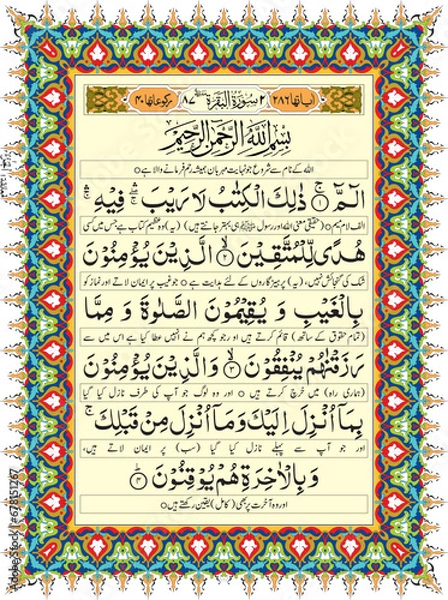 اٰیاتہا ۲۸۶ ۲ سُوْرَۃُ الْبَقَرَۃِ ۸۷ رکوعاتہا ۴۰
بِسْمِ اللّٰهِ الرَّحْمٰنِ الرَّحِيْمِ
اللہ کے نام سے شروع جو نہایت مہربان ہمیشہ رحم فرمانے والا ہے ہ
الٓمّٓ ۚ﴿۱﴾ ذٰلِكَ الْكِتٰبُ لَا رَيْبَ ۛۖ فِيْهِ ۛۚ
الف لام میم ہ (حقیقی معنی اللہ اور رسول ﷺ ہی بہتر جانتے ہیں) (یہ) وہ عظیم کتاب ہے جس میں کسی
هُدًى لِّلْمُتَّقِيْنَ ۙ﴿۲﴾ الَّذِيْنَ يُؤْمِنُوْنَ
شک کی گنجائش نہیں، (یہ) پرہیزگاروں کے لئے ہدایت ہے ہ جو غیب پر ایمان لاتے اور نماز کو
بِالْغَيْبِ وَ يُقِيْمُوْنَ الصَّلٰوةَ وَ مِمَّا
(تمام حقوق کے ساتھ) قائم کرتے ہیں اور جو کچھ ہم نے انہیں عطا کیا ہے اس میں سے
رَزَقْنٰهُمْ يُنْفِقُوْنَ ۙ﴿۳﴾ وَالَّذِيْنَ يُؤْمِنُوْنَ
(ہماری راہ) میں خرچ کرتے ہیں ہ اور وہ لوگ جو آپ کی طرف نازل کیا گیا
بِمَاۤ اُنْزِلَ اِلَيْكَ وَمَاۤ اُنْزِلَ مِنْ قَبْلِكَ ۚ
اور جو آپ سے پہلے نازل کیا گیا (سب) پر ایمان لاتے ہیں،
وَبِالْاٰخِرَةِ هُمْ يُوْقِنُوْنَ ؕ﴿۴﴾
اور وہ آخرت پر بھی (کامل) یقین رکھتے ہیں ہ
Adobe Stock | #678151267